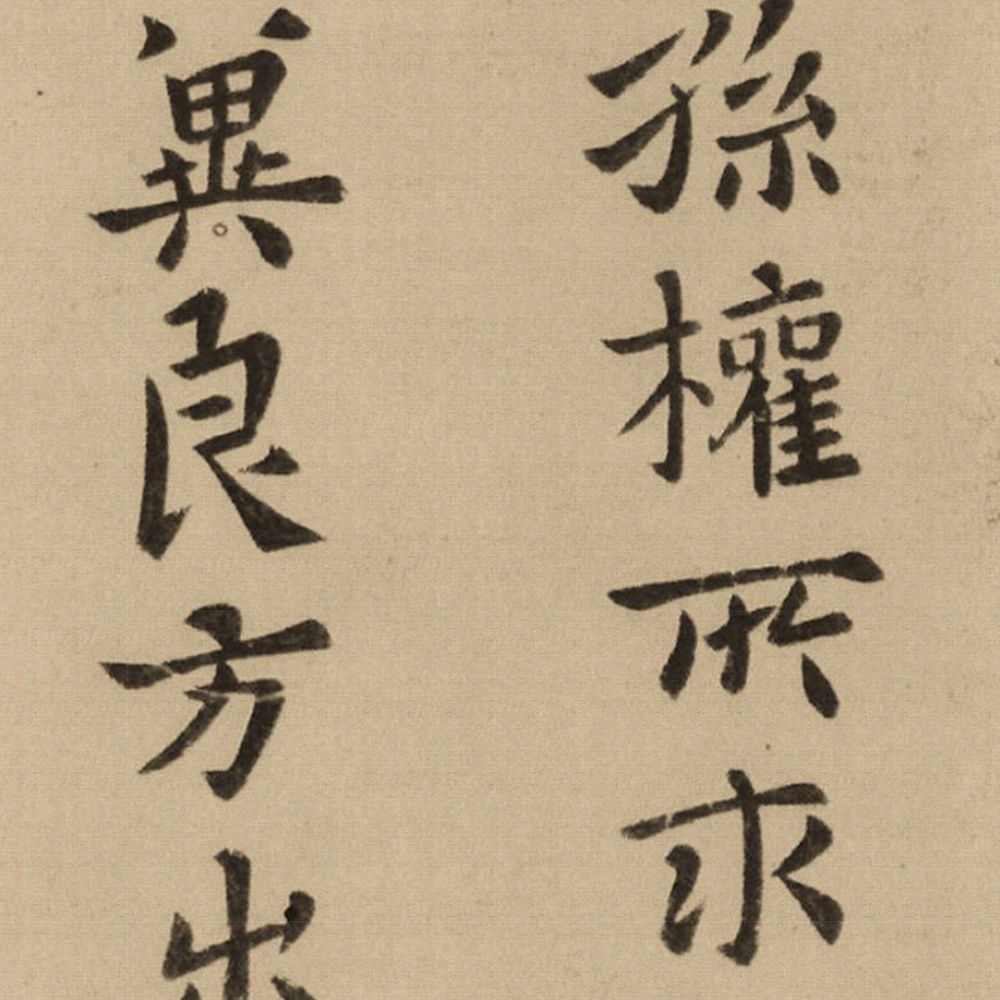 孫權所求
冀良方出